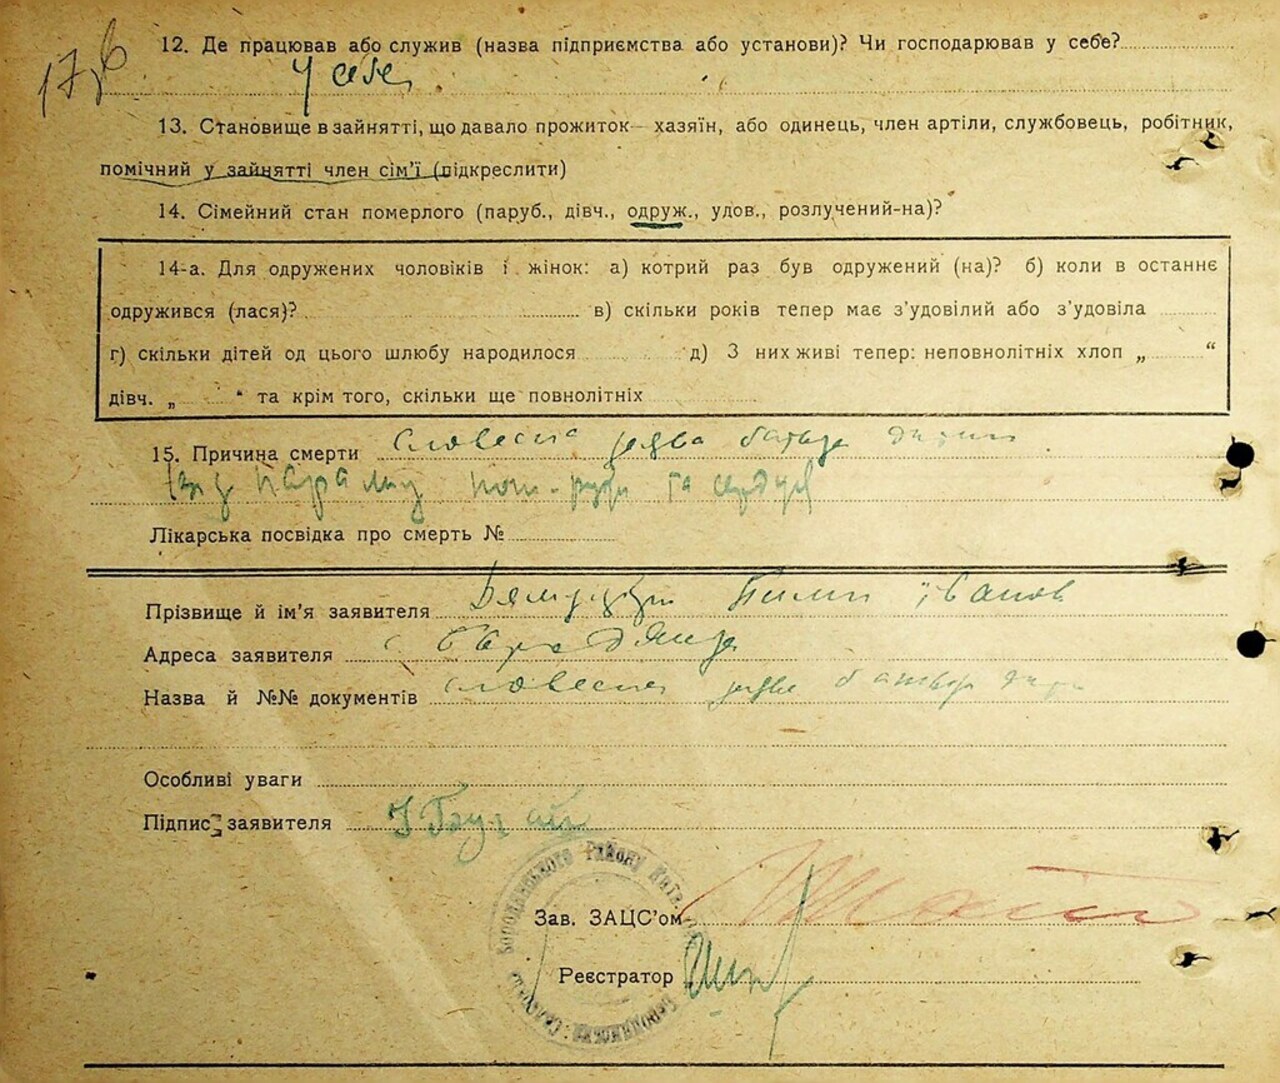 17,6
12. Де працював або служив (назва підприємства або установи)? Чи господарював у себе?
У себе
13. Становище в зайнятті, що давало прожиток — хазяїн, або одинець, член артіли, службовець, робітник,
помічний у зайнятті член сім'ї (підкреслити)
14. Сімейний стан померлого (паруб., дівч., одруж., удов., розлучений-на)?
14-а. Для одружених чоловіків і жінок: а) котрий раз був одружений (на)? б) коли в останнє
одружився (лася)? в) скільки років тепер має з'удовілий або з'удовіла
г) скільки дітей од цього шлюбу народилося д) З них живі тепер: неповнолітніх хлоп „ “
дівч. „ “ та крім того, скільки ще повнолітніх
15. Причина смерти словесна заява батька
та
Лікарська посвідка про смерть №
Прізвище й ім'я заявителя Іванов
Адреса заявителя с.
Назва й №№ документів словесна заява батька
Особливі уваги
Підпис заявителя
Бородянського Району Київ.
Зав. ЗАЦС'ом
Реєстратор